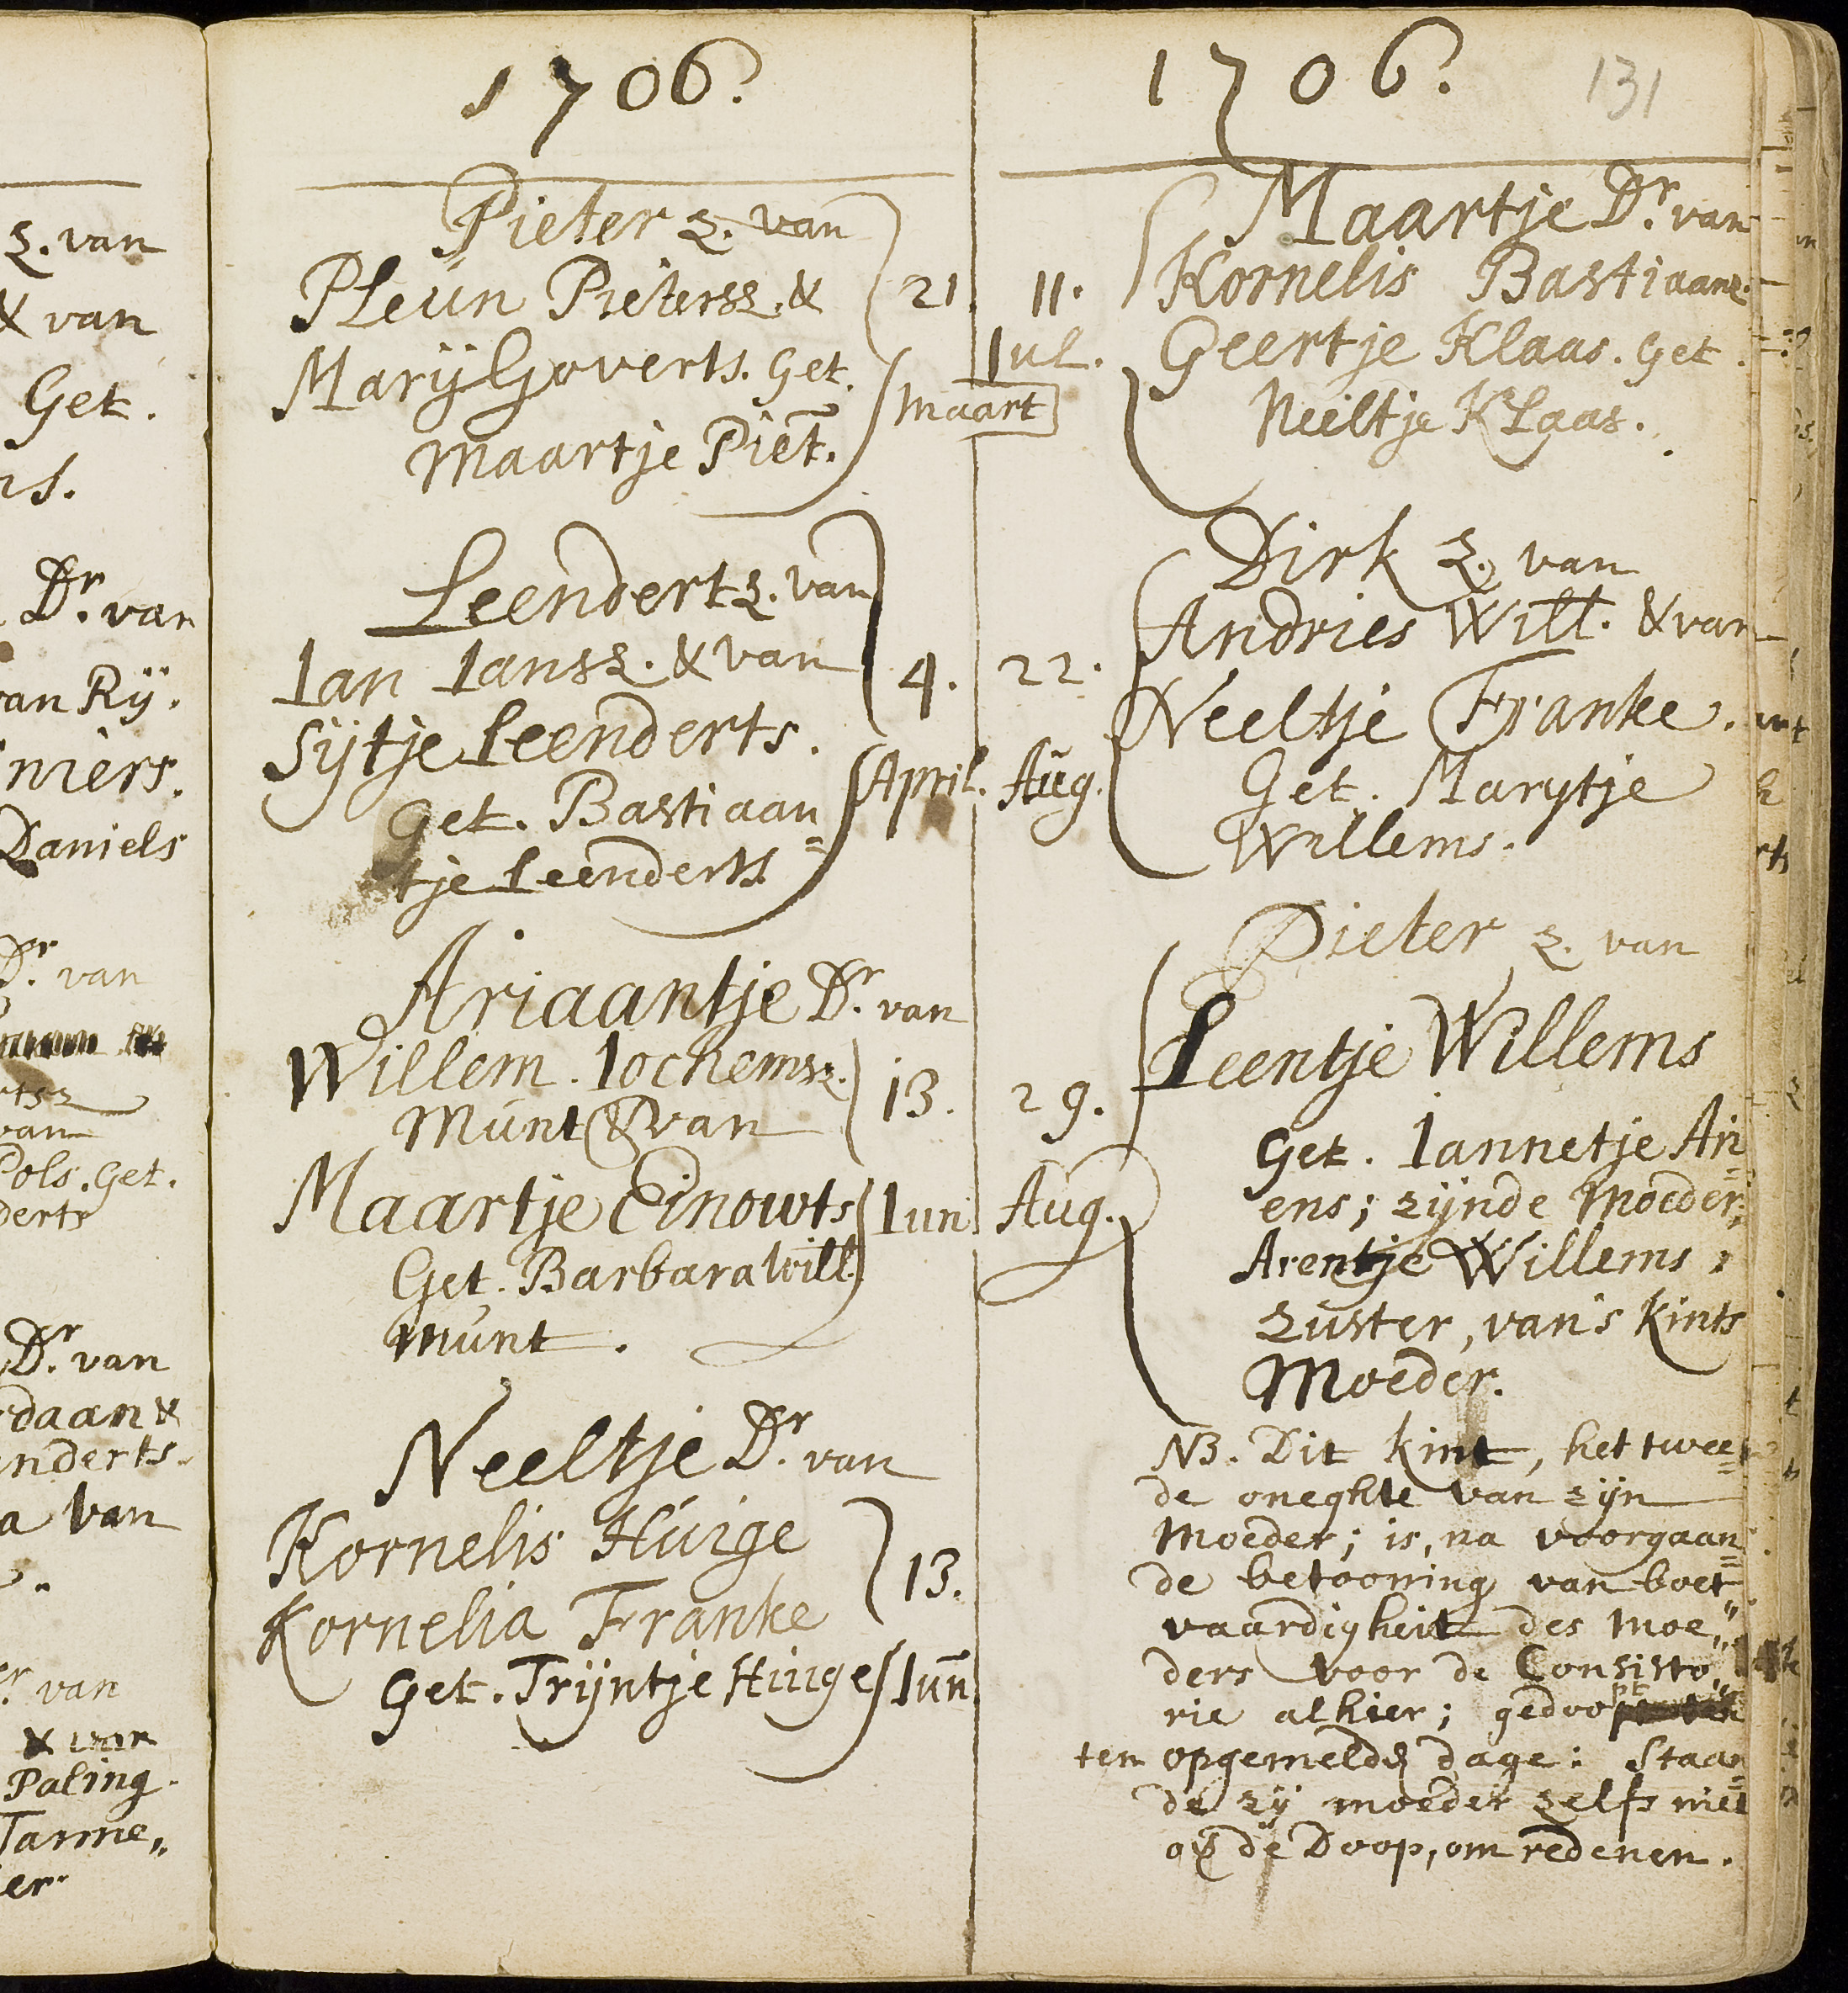 1706.
Pieter Z. van
PLeún Pieterss Z. &
Marÿ Goverts. Get.
Maartje Piet.
21.
Maart
Leendert Z. van
Ian Ianss Z. & van
Sijtje Leenderts.
Get. Bastiaan=
tje Leenderts
4.
April.
Ariaantje Dr. van
Willem Iochemsz.
Múnt & van
Maartje Einowts
Get. Barbara Will.
Múnt.
13.
Iun
Neeltje Dr. van
Kornelis Húige
Kornelia Franke
Get. Trijntje Húige
13.
Iun
1706.
131
Maartje Dr. van
Kornelis Bastiaanz.
Geertje Klaas. Get.
Neeltje KLaas.
11.
Iul.
Dirk Z. van
Andries Will. & van
Neeltje Franke.
Get. Marytje
Willems.
22.
Aug.
Pieter Z. van
Leentje Willems
Get. Iannetje Ari=
ens; zijnde Moeder;
Arentje Willems,
Zuster, van's Kints
Moeder.
29.
Aug.
NB. Dit kint, het twee=
de oneghte van zijn
Moeder; is, na voorgaan=
de betooning van boet=
vaardigheit des Moe„
ders voor de Consisto„
rie alhier; gedoopt
ten opgemelde dage: Staan=
de zij moeder zelfs niet
op de Doop, om redenen.
Z. van
& van
Get.
Dr. van
van Rÿ.
niers.
Daniels
Dr. van
van
Pols. Get.
derts
Dr. van
daan &
enderts.
a van
van
& van
Paling.
Tanne„
er.